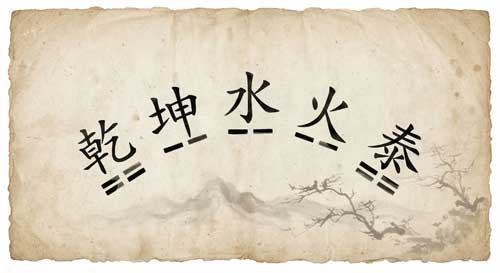 乾坤水火泰